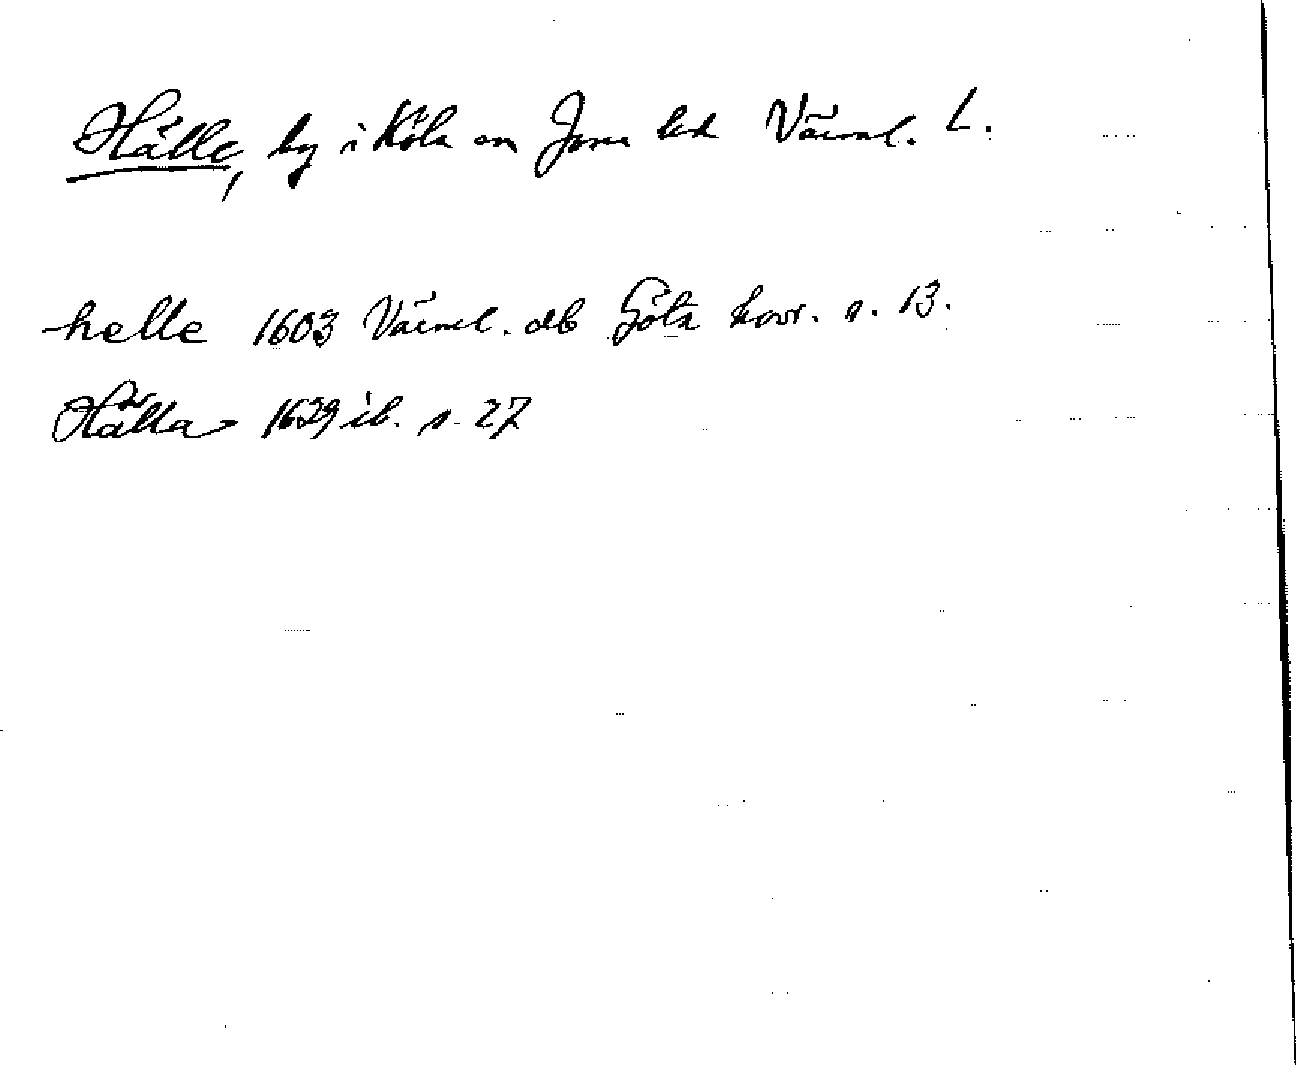 Hälle, by i Köla sn Jösse hd Värml. L.
helle 1603 Värml. db Göta hovr. s. 13.
Hälla 1629 ib. s. 27